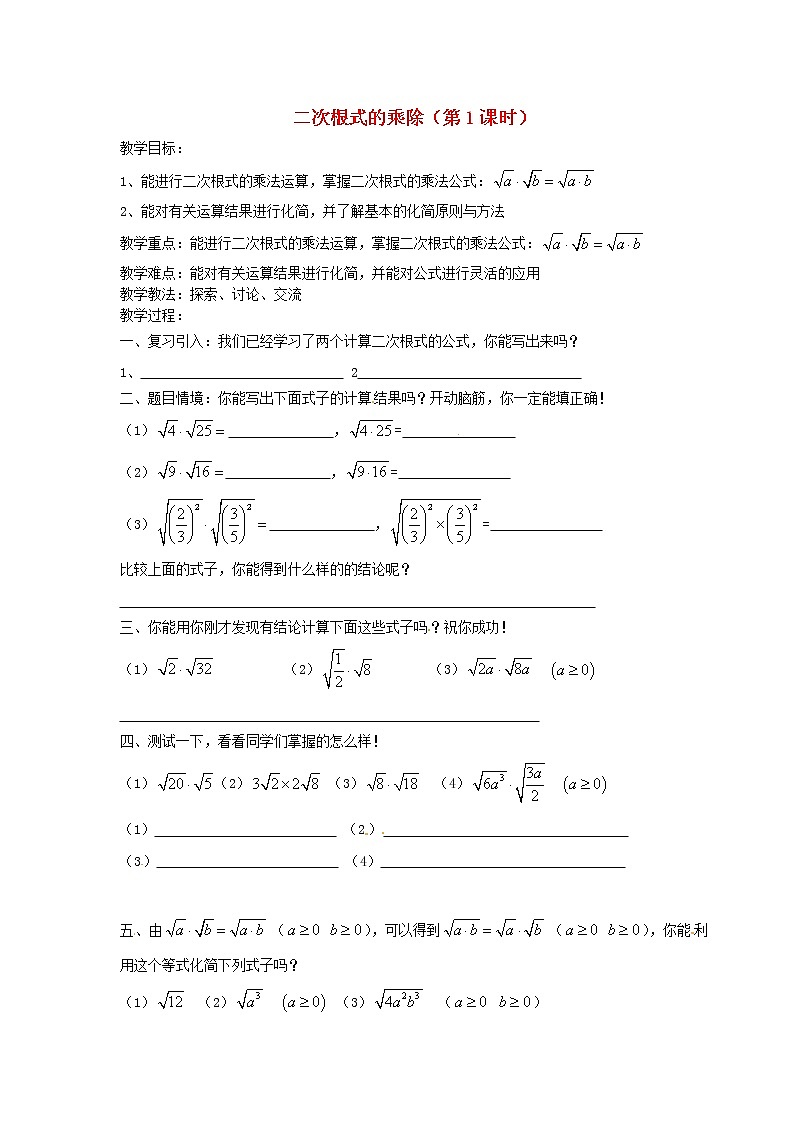 二次根式的乘除（第1课时）
教学目标：
1、能进行二次根式的乘法运算，掌握二次根式的乘法公式：√a·√b=√(a·b)
2、能对有关运算结果进行化简，并了解基本的化简原则与方法
教学重点：能进行二次根式的乘法运算，掌握二次根式的乘法公式：√a·√b=√(a·b)
教学难点：能对有关运算结果进行化简，并能对公式进行灵活的应用
教学教法：探索、讨论、交流
教学过程：
一、复习引入：我们已经学习了两个计算二次根式的公式，你能写出来吗？
1、____________ 2____________
二、题目情境：你能写出下面式子的计算结果吗？开动脑筋，你一定能填正确！
（1）√4·√25=____________，√(4·25)=____________
（2）√9·√16=____________，√(9·16)=____________
（3）√((2/3)²)·√((3/5)²)=____________，√((2/3)²×(3/5)²)=____________
比较上面的式子，你能得到什么样的的结论呢？
三、你能用你刚才发现有结论计算下面这些式子吗？祝你成功！
（1）√2·√32 （2）√(1/2)·√8 （3）√(2a)·√(8a) (a≥0)
四、测试一下，看看同学们掌握的怎么样！
（1）√20·√5（2）3√2×2√8 （3）√8·√18 （4）√(6a³)·√(3a/2) (a≥0)
（1）____________ （2）____________
（3）____________ （4）____________
五、由√a·√b=√(a·b)（a≥0 b≥0），可以得到√(a·b)=√a·√b（a≥0 b≥0），你能利
用这个等式化简下列式子吗？
（1）√12 （2）√(a³) (a≥0)（3）√(4a²b³) （a≥0 b≥0）